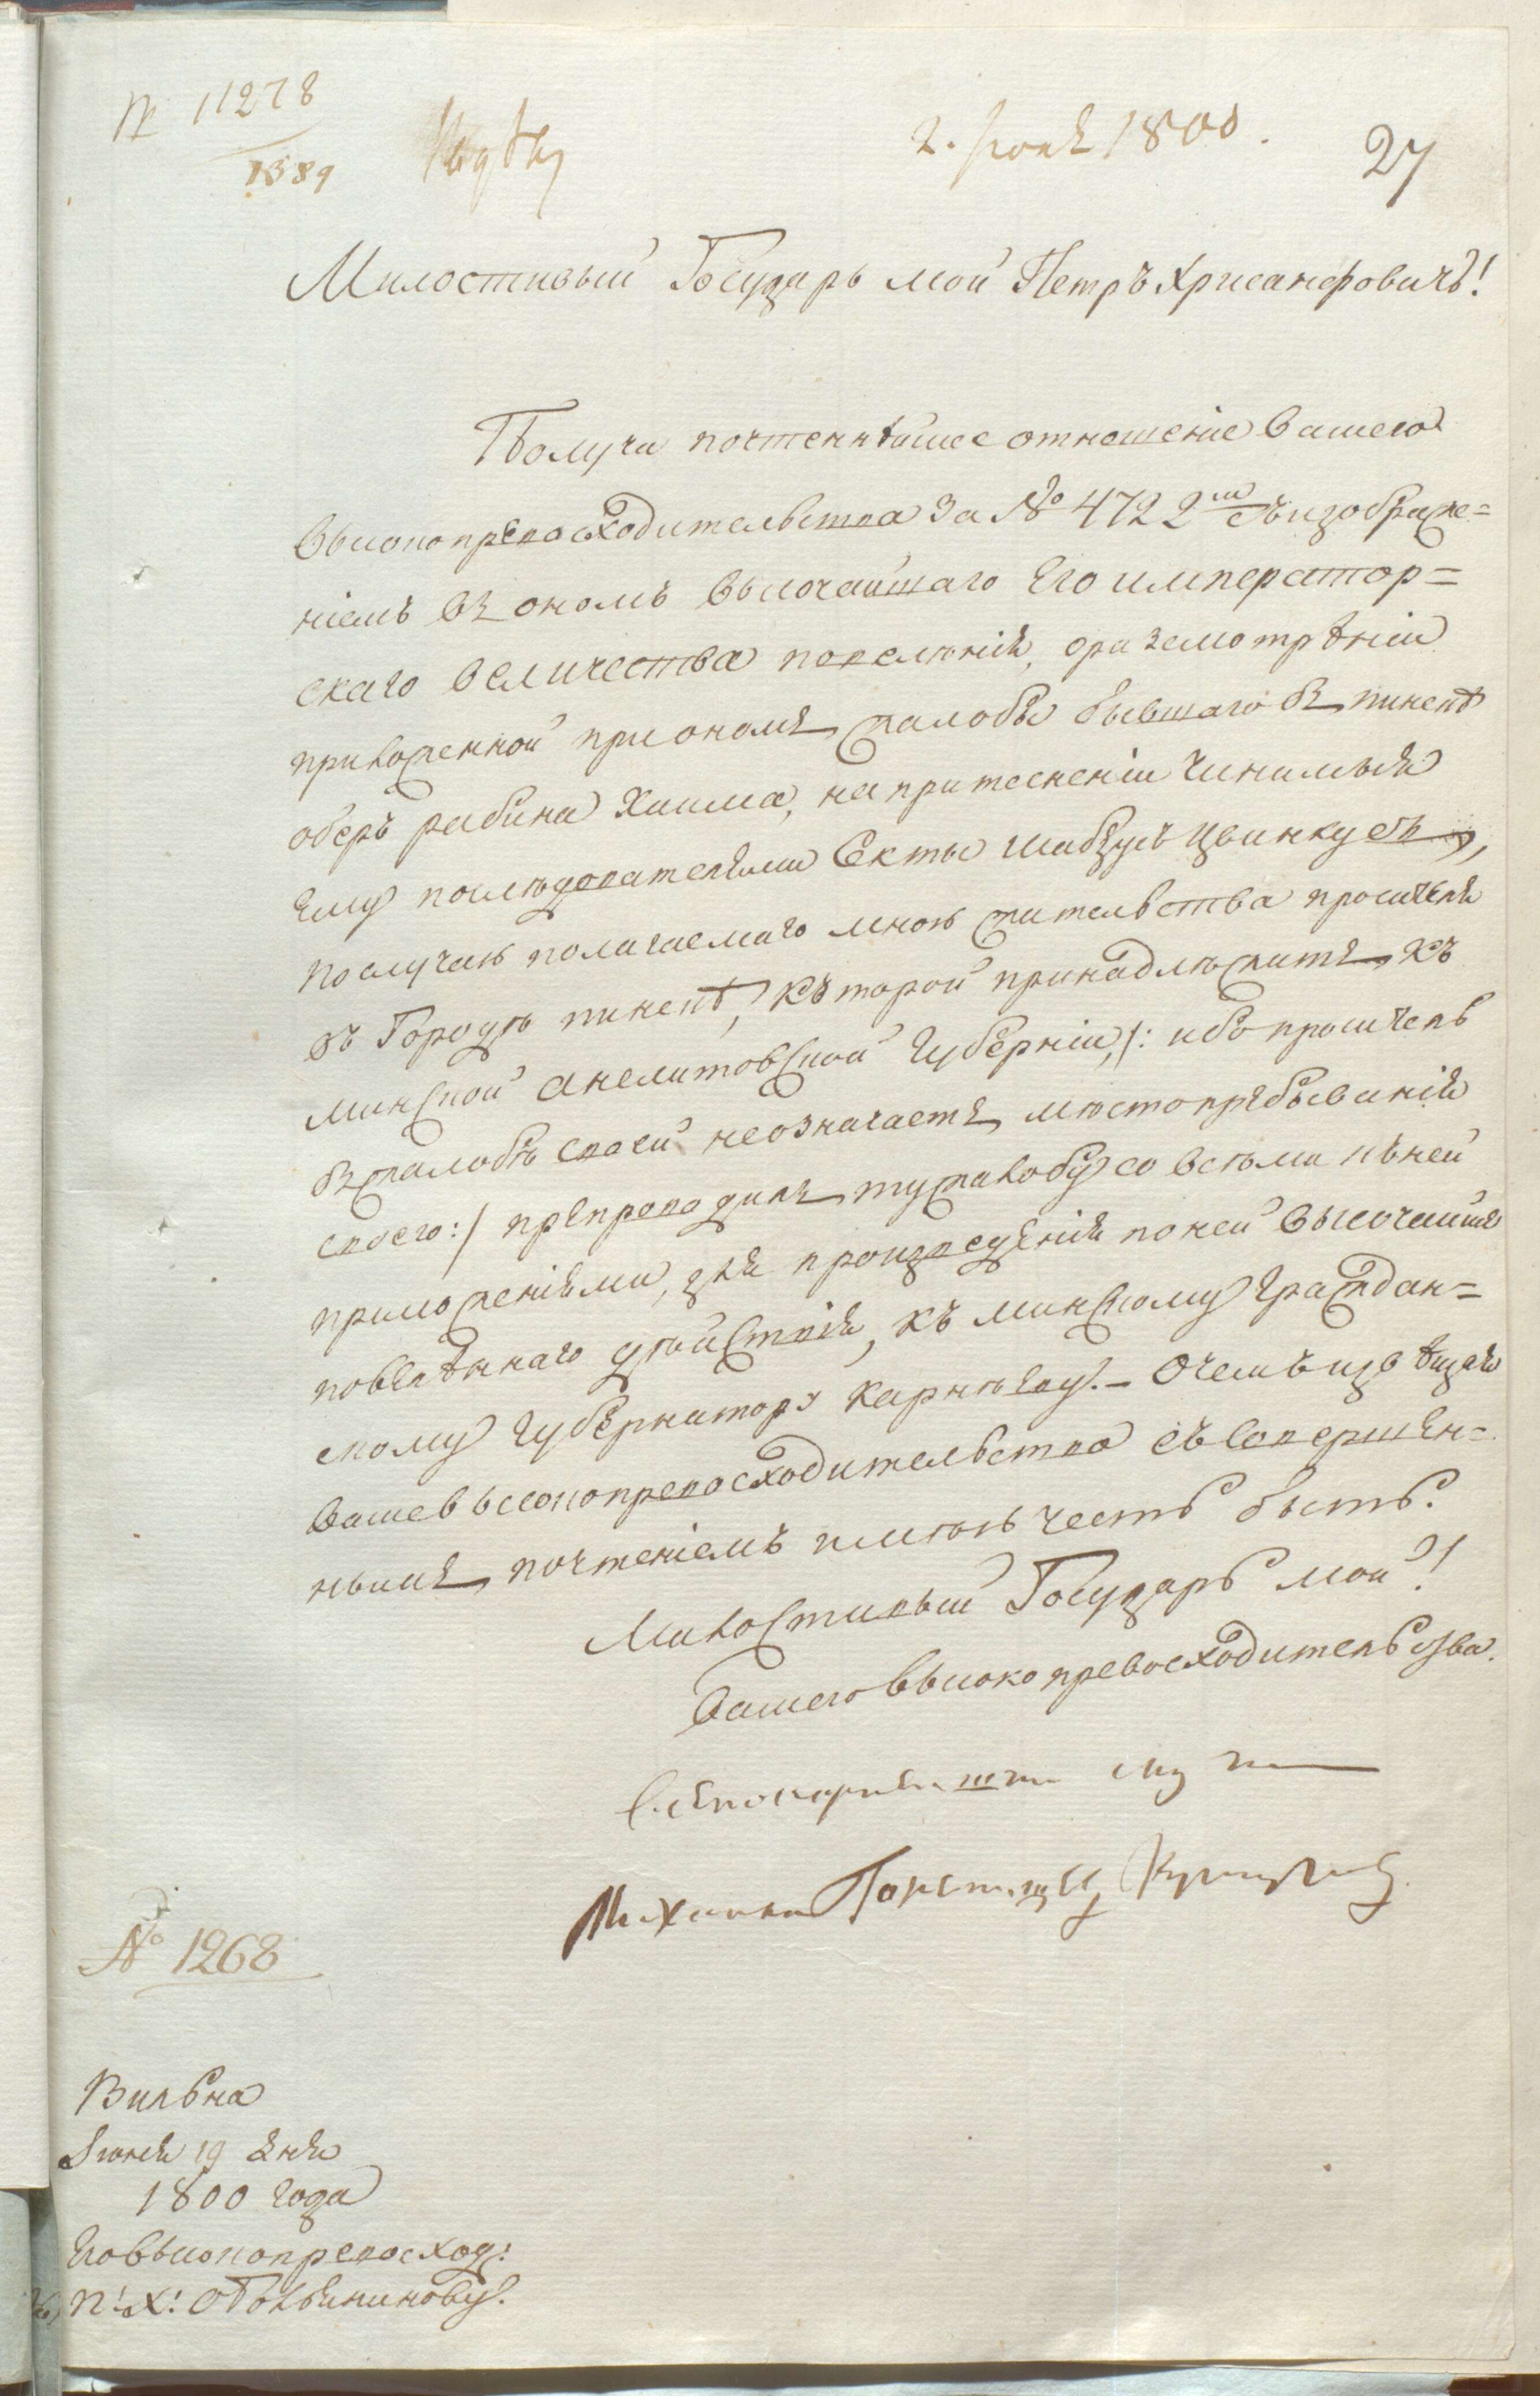 № 11278
1389
2. Іюля 1800.
27
Милостивый Государь мой Петръ Хрисанфовичъ!
Получа почтеннѣйшее отношеніе Вашего
высокопревосходительства За № 4722мъ съ изображе=
ніемъ въ ономъ высочайшаго Его император=
скаго величества повелѣнія, о разсмотрѣніи
приложенной при ономъ жалобы бывшаго въ пинскѣ
оберъ рабина Хаима, на притесненіи Чинимыя
Ему послѣдователями Секты шабзуъ цвинкусъ,
по случаю полагаемаго мною жительства просителя
въ Городѣ пинскѣ, который принадлежитъ къ
минской а нелитовской Губерніи, /: ибо проситель
въ жалобѣ своей неозначаетъ мѣстопребыванія
своего :/ препроводилъ ту жалобу со всѣми къ ней
приложеніями, для произведенія по ней высочайше
повелѣннаго дѣйствія, къ минскому Граждан=
скому Губернатору Карнѣеву. – О чемъ извѣщая
Ваше высокопревосходительство съ совершен=
нымъ почтеніемъ имѣю честь быть.
Милостивый Государь мой!
Вашего высокопревосходительства.
всепокорнѣйшій слуга
Михаила Голенищевъ Кутузовъ
№ 1268
Вильна
Іюня 19 дня
1800 года
Его высокопревосход:
П: Х: Обольянинову.